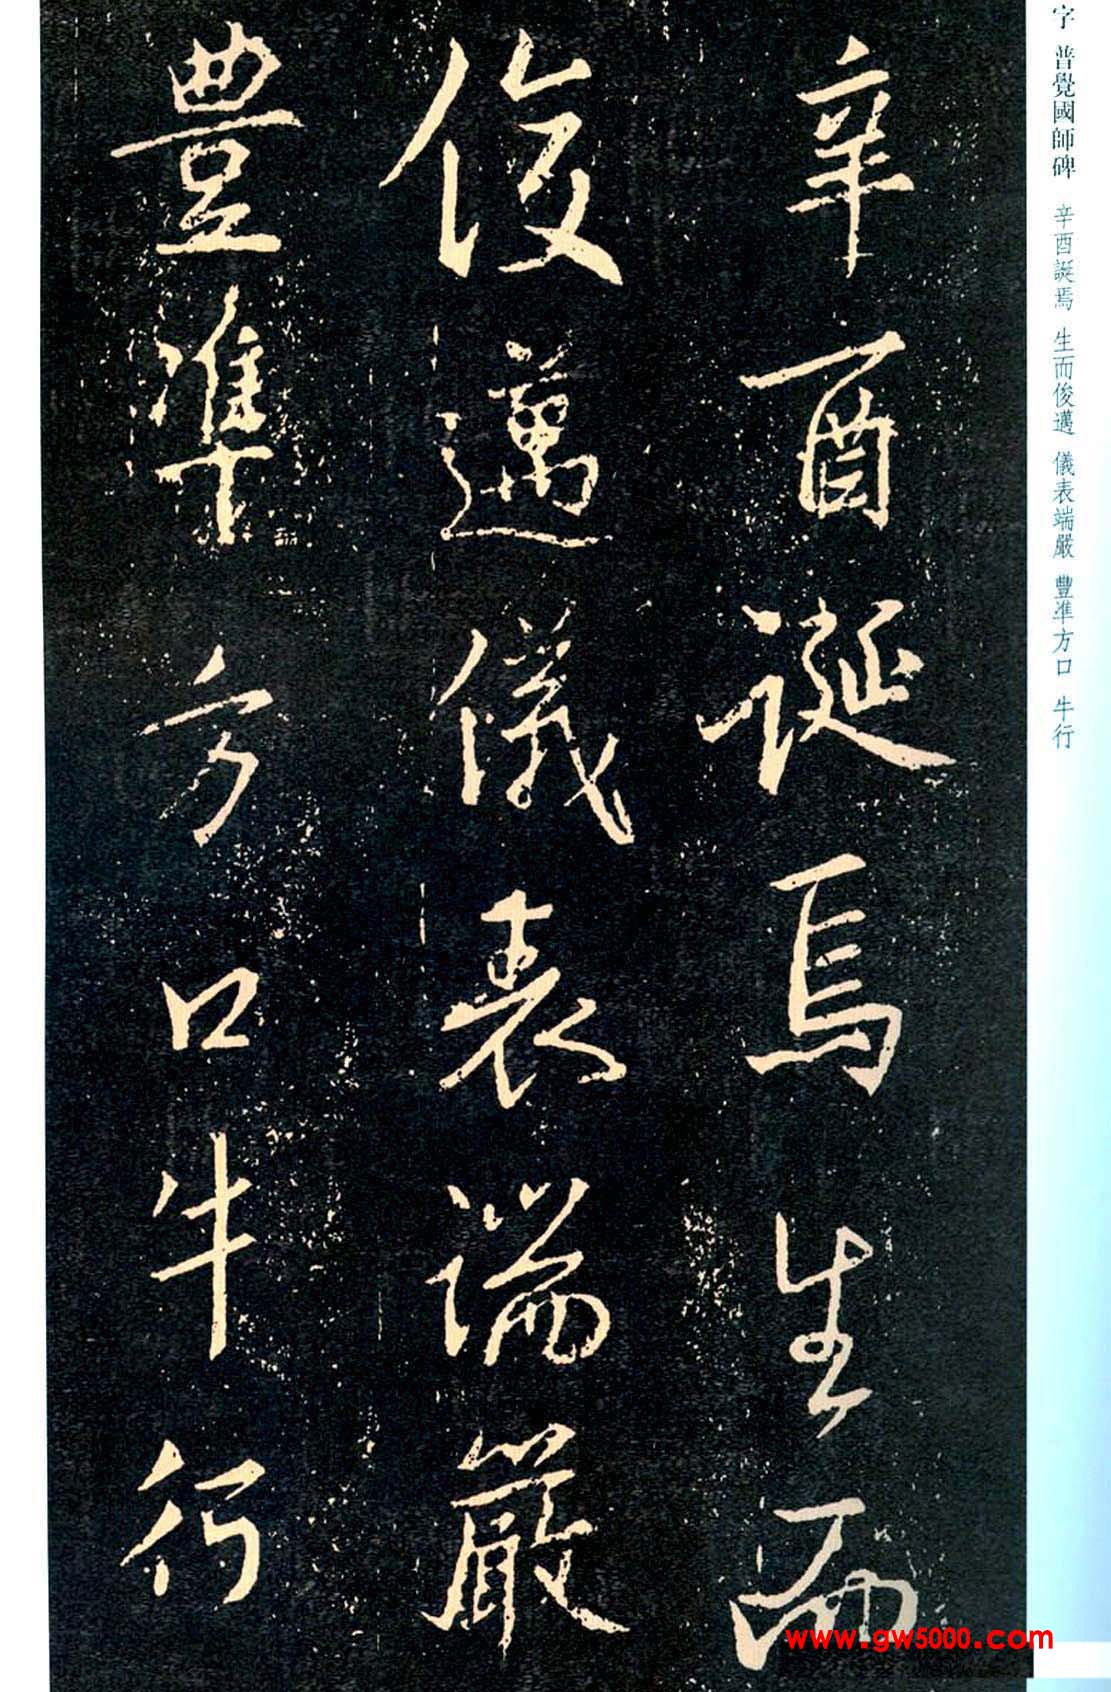 字 普覺國師碑 辛酉誕焉 生而俊邁 儀表端嚴 豐準方口 牛行
辛酉誕焉生而
俊邁儀表端嚴
豊準方口牛行
www.gw5000.com